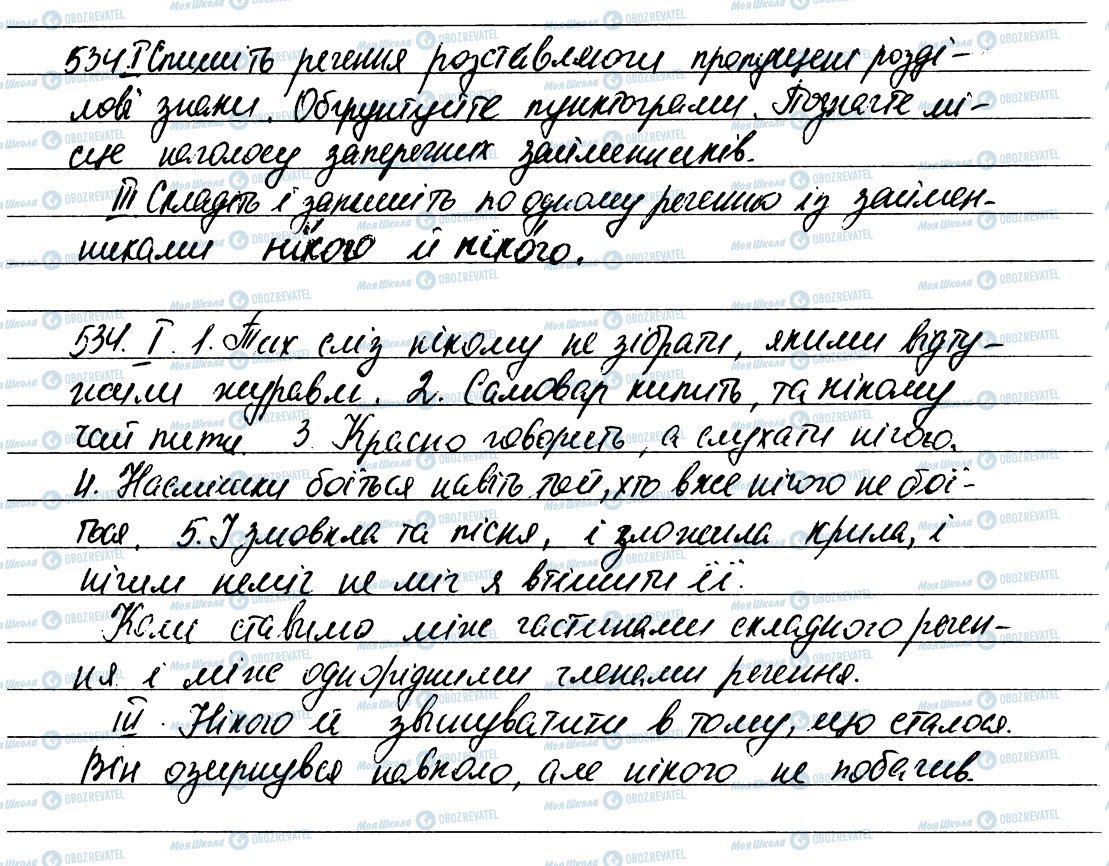 534. I Спишіть речення розставляючи пропущені розді-
лові знаки. Обґрунтуйте пунктограми. Позначте мі-
сце наголосу заперечних займенників.
III Складіть і запишіть по одному реченню із займен-
никами ні́кого й ніко́го.
534. I. 1. Тих сліз нікому не зібрати, якими відту-
жили журавлі. 2. Самовар кипить, та нікому
чай пити. 3. Красно говорить, а слухати нічого.
4. Насмішки боїться навіть той, хто вже нічого не бої-
ться. 5. І змовкла та пісня, і зложила крила, і
нічим неміг не міг я втішити її.
Коми ставимо між частинами складного речен-
ня і між однорідними членами речення.
III. Нікого й звинуватити в тому, що сталося.
Він озирнувся навколо, але нікого не побачив.